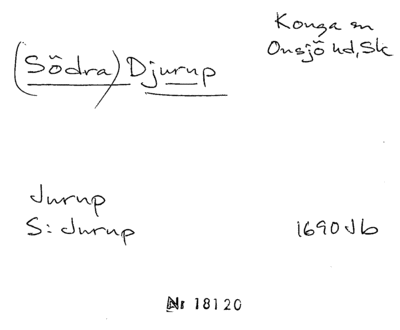 Konga sn
Onsjö hd, Sk
(Södra) Djurup
Jurup
S: Jurup 1690 Jb
Nr 18120